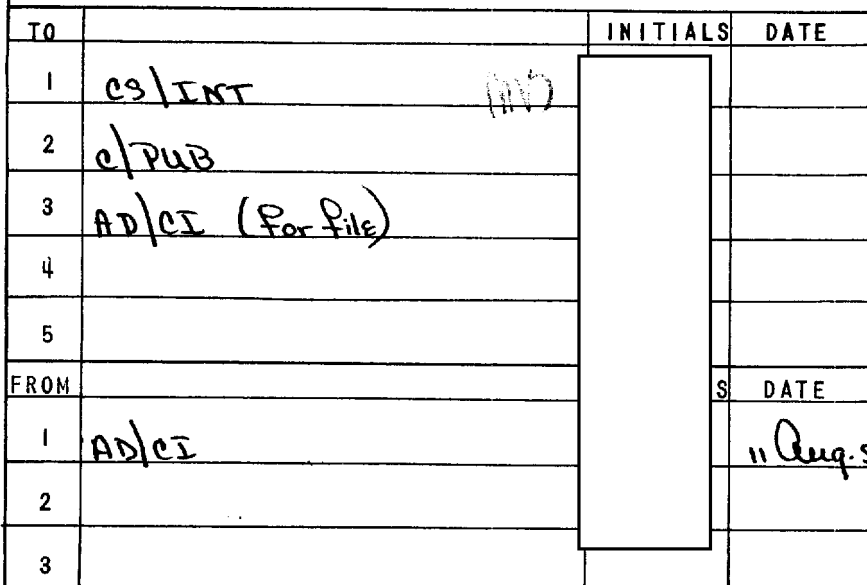 TO INITIALS DATE
1 CS/INT
2 C/PUB
3 AD/CI (for file)
4
5
FROM S DATE
1 AD/CI 11 Aug.
2
3